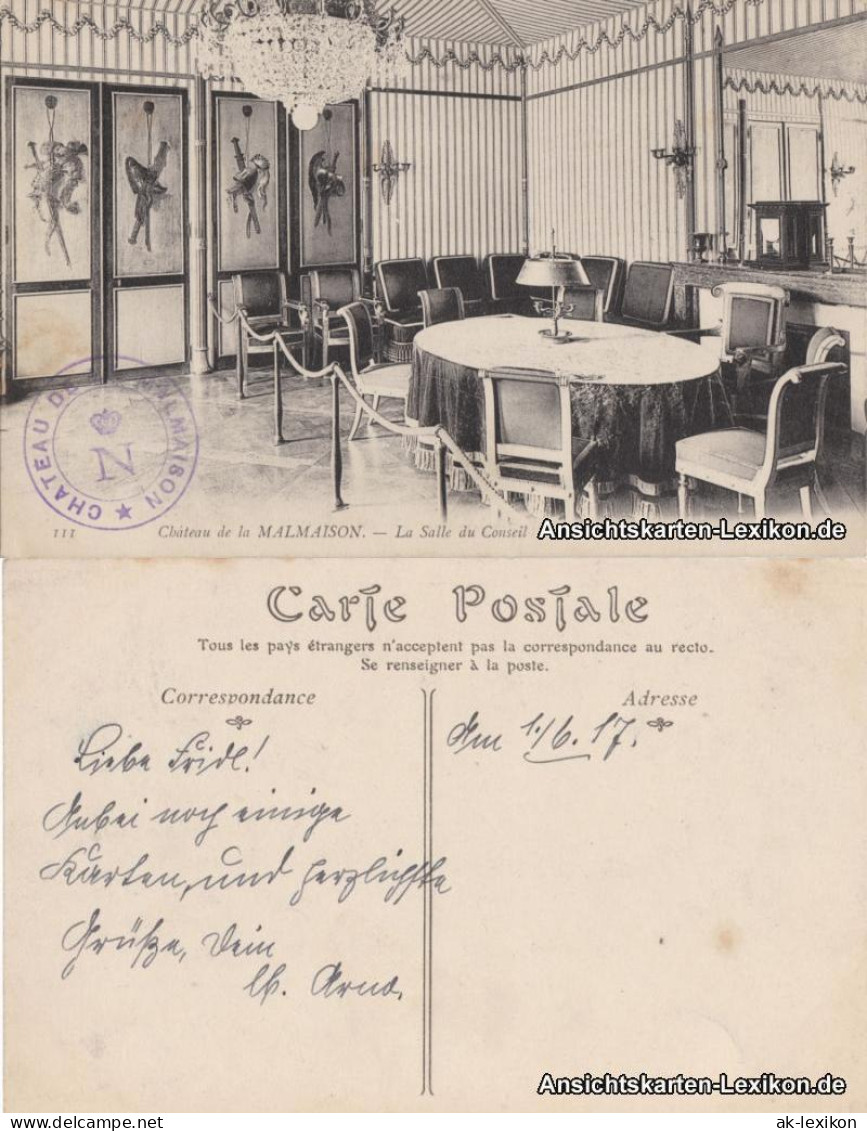 CHATEAU DE MALMAISON
N
111 Château de la MALMAISON. — La Salle du Conseil
Ansichtskarten-Lexikon.de
Carte Postale
Tous les pays étrangers n'acceptent pas la correspondance au recto.
Se renseigner à la poste.
Correspondance
Adresse
Am 1./6.17.
Liebe Fridl!
Anbei noch einige
Karten, und herzlichste
Grüße, Dein
lb. Arno.
Ansichtskarten-Lexikon.de
ak-lexikon